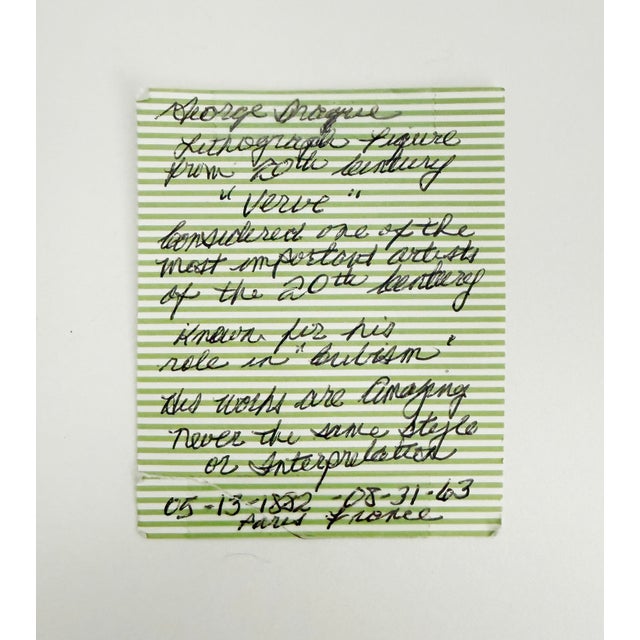 George Braque
Lithograph Figure
from 20th Century
"Verve"
Considered one of the
most important artists
of the 20th Century
Known for his
role in "Cubism"
His works are Amazing
never the same style
or Interpretation
05-13-1882 - 08-31-63
Paris France